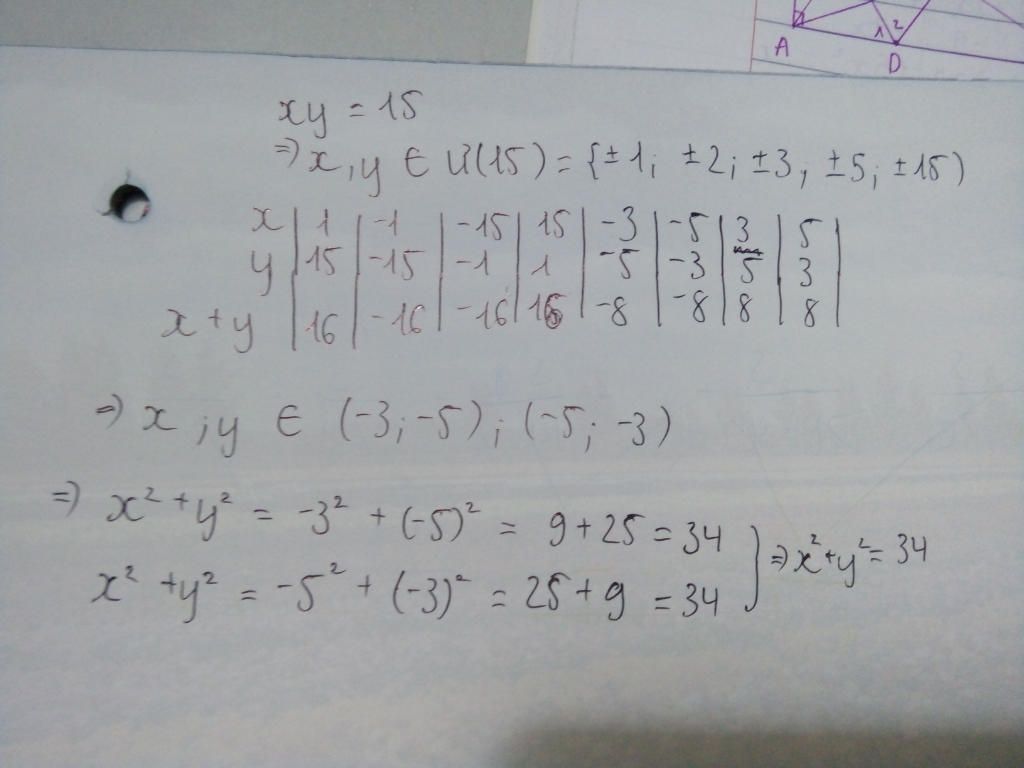 A
1 2
D
xy = 15
=> x, y ∈ Ư(15) = {±1; ±2; ±3; ±5; ±15)
x | 1 | -1 | -15 | 15 | -3 | -5 | 3 | 5 |
y | 15 | -15 | -1 | 1 | -5 | -3 | 5 | 3 |
x + y | 16 | -16 | -16 | 16 | -8 | -8 | 8 | 8 |
=> x ; y ∈ (-3; -5); (-5; -3)
=> x² + y² = -3² + (-5)² = 9 + 25 = 34
x² + y² = -5² + (-3)² = 25 + 9 = 34
} => x² + y² = 34